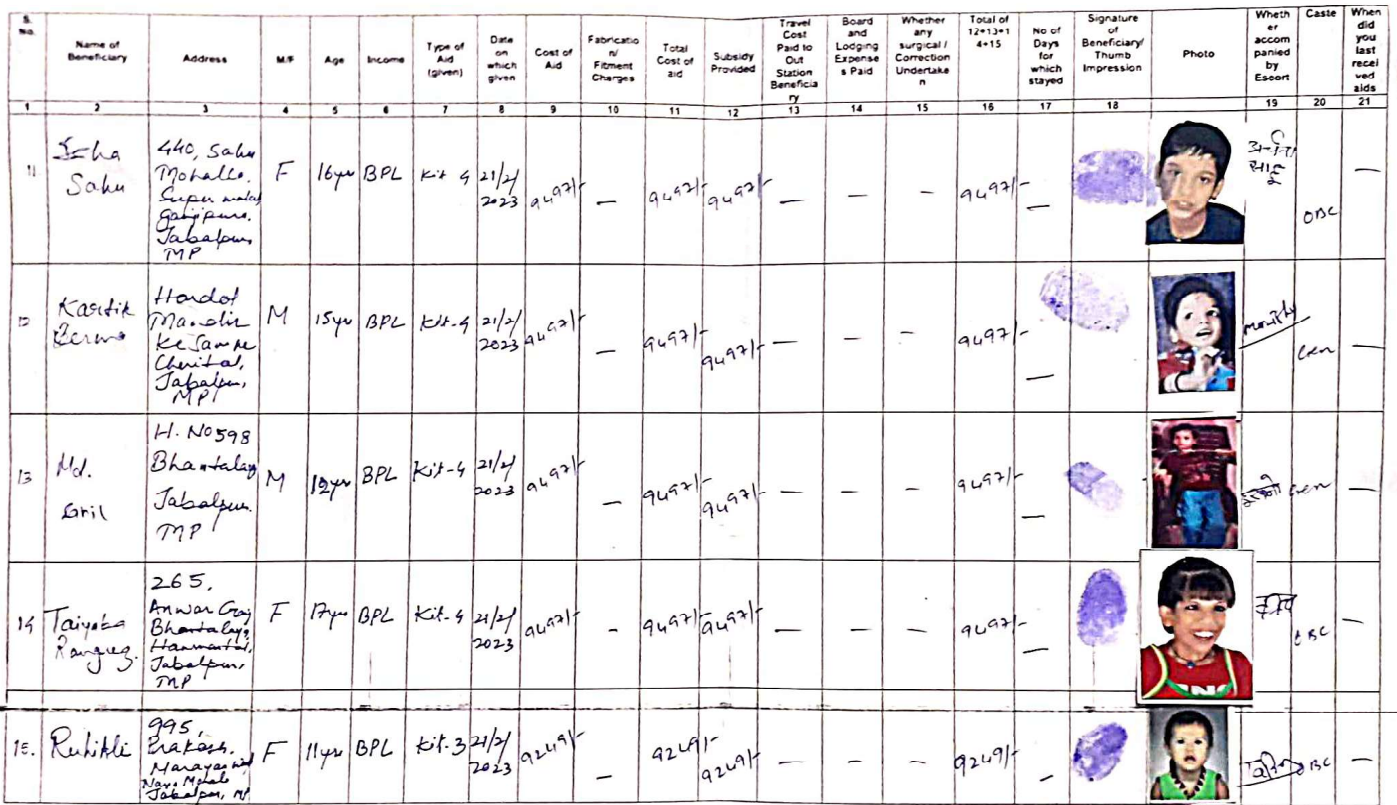 S. No. Name of Beneficiary Address M/F Age Income Type of Aid (given) Date on which given Cost of Aid Fabricatio n/ Fitment Charges Total Cost of aid Subsidy Provided Travel Cost Paid to Out Station Beneficia ry Board and Lodging Expense s Paid Whether any surgical / Correction Undertake n Total of 12+13+1 4+15 No of Days for which stayed Signature of Beneficiary/ Thumb Impression Photo Wheth er accom panied by Escort Caste When did you last recei ved aids
1 2 3 4 5 6 7 8 9 10 11 12 13 14 15 16 17 18 19 20 21
11 Isha Sahu 440, Sahu Mohalla, Super Jabalpur MP F 16yr BPL Kit 4 21/2/2023 9497/- — 9497/- 9497/- — — — 9497/- — OBC —
12 Kartik Hardol Mandir Ke Samne Cherital, Jabalpur, MP M 15yr BPL Kit-4 21/2/2023 9497/- — 9497/- 9497/- — — — 9497/- — Gen —
13 Md. H. No 598 Bhantalay Jabalpur MP M BPL Kit-4 21/2/2023 9497/- — 9497/- 9497/- — — — 9497/- — Gen —
14 Taiyaba Rangrez. 265, Anwar Bhantalay, Hanumantal, Jabalpur, MP F 17yr BPL Kit-4 21/2/2023 9497/- - 9497/- 9497/- — — — 9497/- — OBC —
15. 995, Prakash Jabalpur, MP F 11yr BPL Kit-3 21/2/2023 9249/- — 9249/- 9249/- — — — 9249/- — OBC —